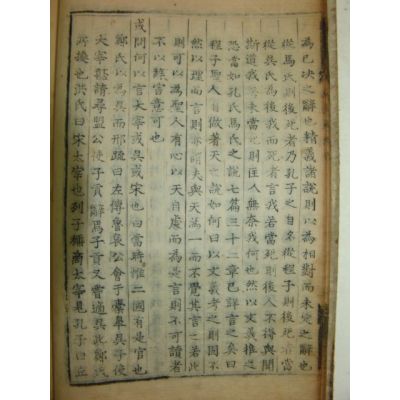 為已決之辭也精義諸說則以為相對而未定之辭也
從馬氏則後死者乃孔子之自名從程子則後死者當
從吳氏為後我而死者言我若當死則後人不得與聞
斯道我若未當死則匡人無柰我何也然以文義推之
恐當如孔氏馬氏之說七篇三十二章已詳言之矣曰
程子聖人自做著天之說如何曰以文義考之則固不
然以理而言則亦謂夫與天為一而不覺其言之若此
則可以為聖人有心以天自處而為是言則不可讀者
不以辭害意可也
或問何以言大宰或吳或宋也曰當時惟二國有是官也
鄭氏以為吳而邢疏曰左傳魯哀公會于橐皋吳子使
大宰嚭請尋盟公使子貢辭焉子貢又嘗適吳此鄭氏
所據也洪氏曰宋大宰也列子稱商大宰見孔子曰丘